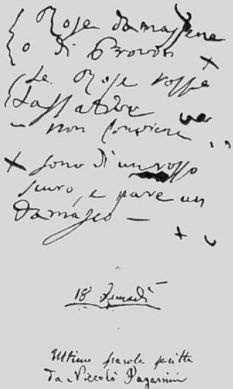 Rose damaschine
o di Provins
Le Rose rosse
Lassative
non conviene
sono di un rosso
scuro, e pare un
Damasco —
18 Lunedì
Ultime parole scritte
da Niccolò Paganini